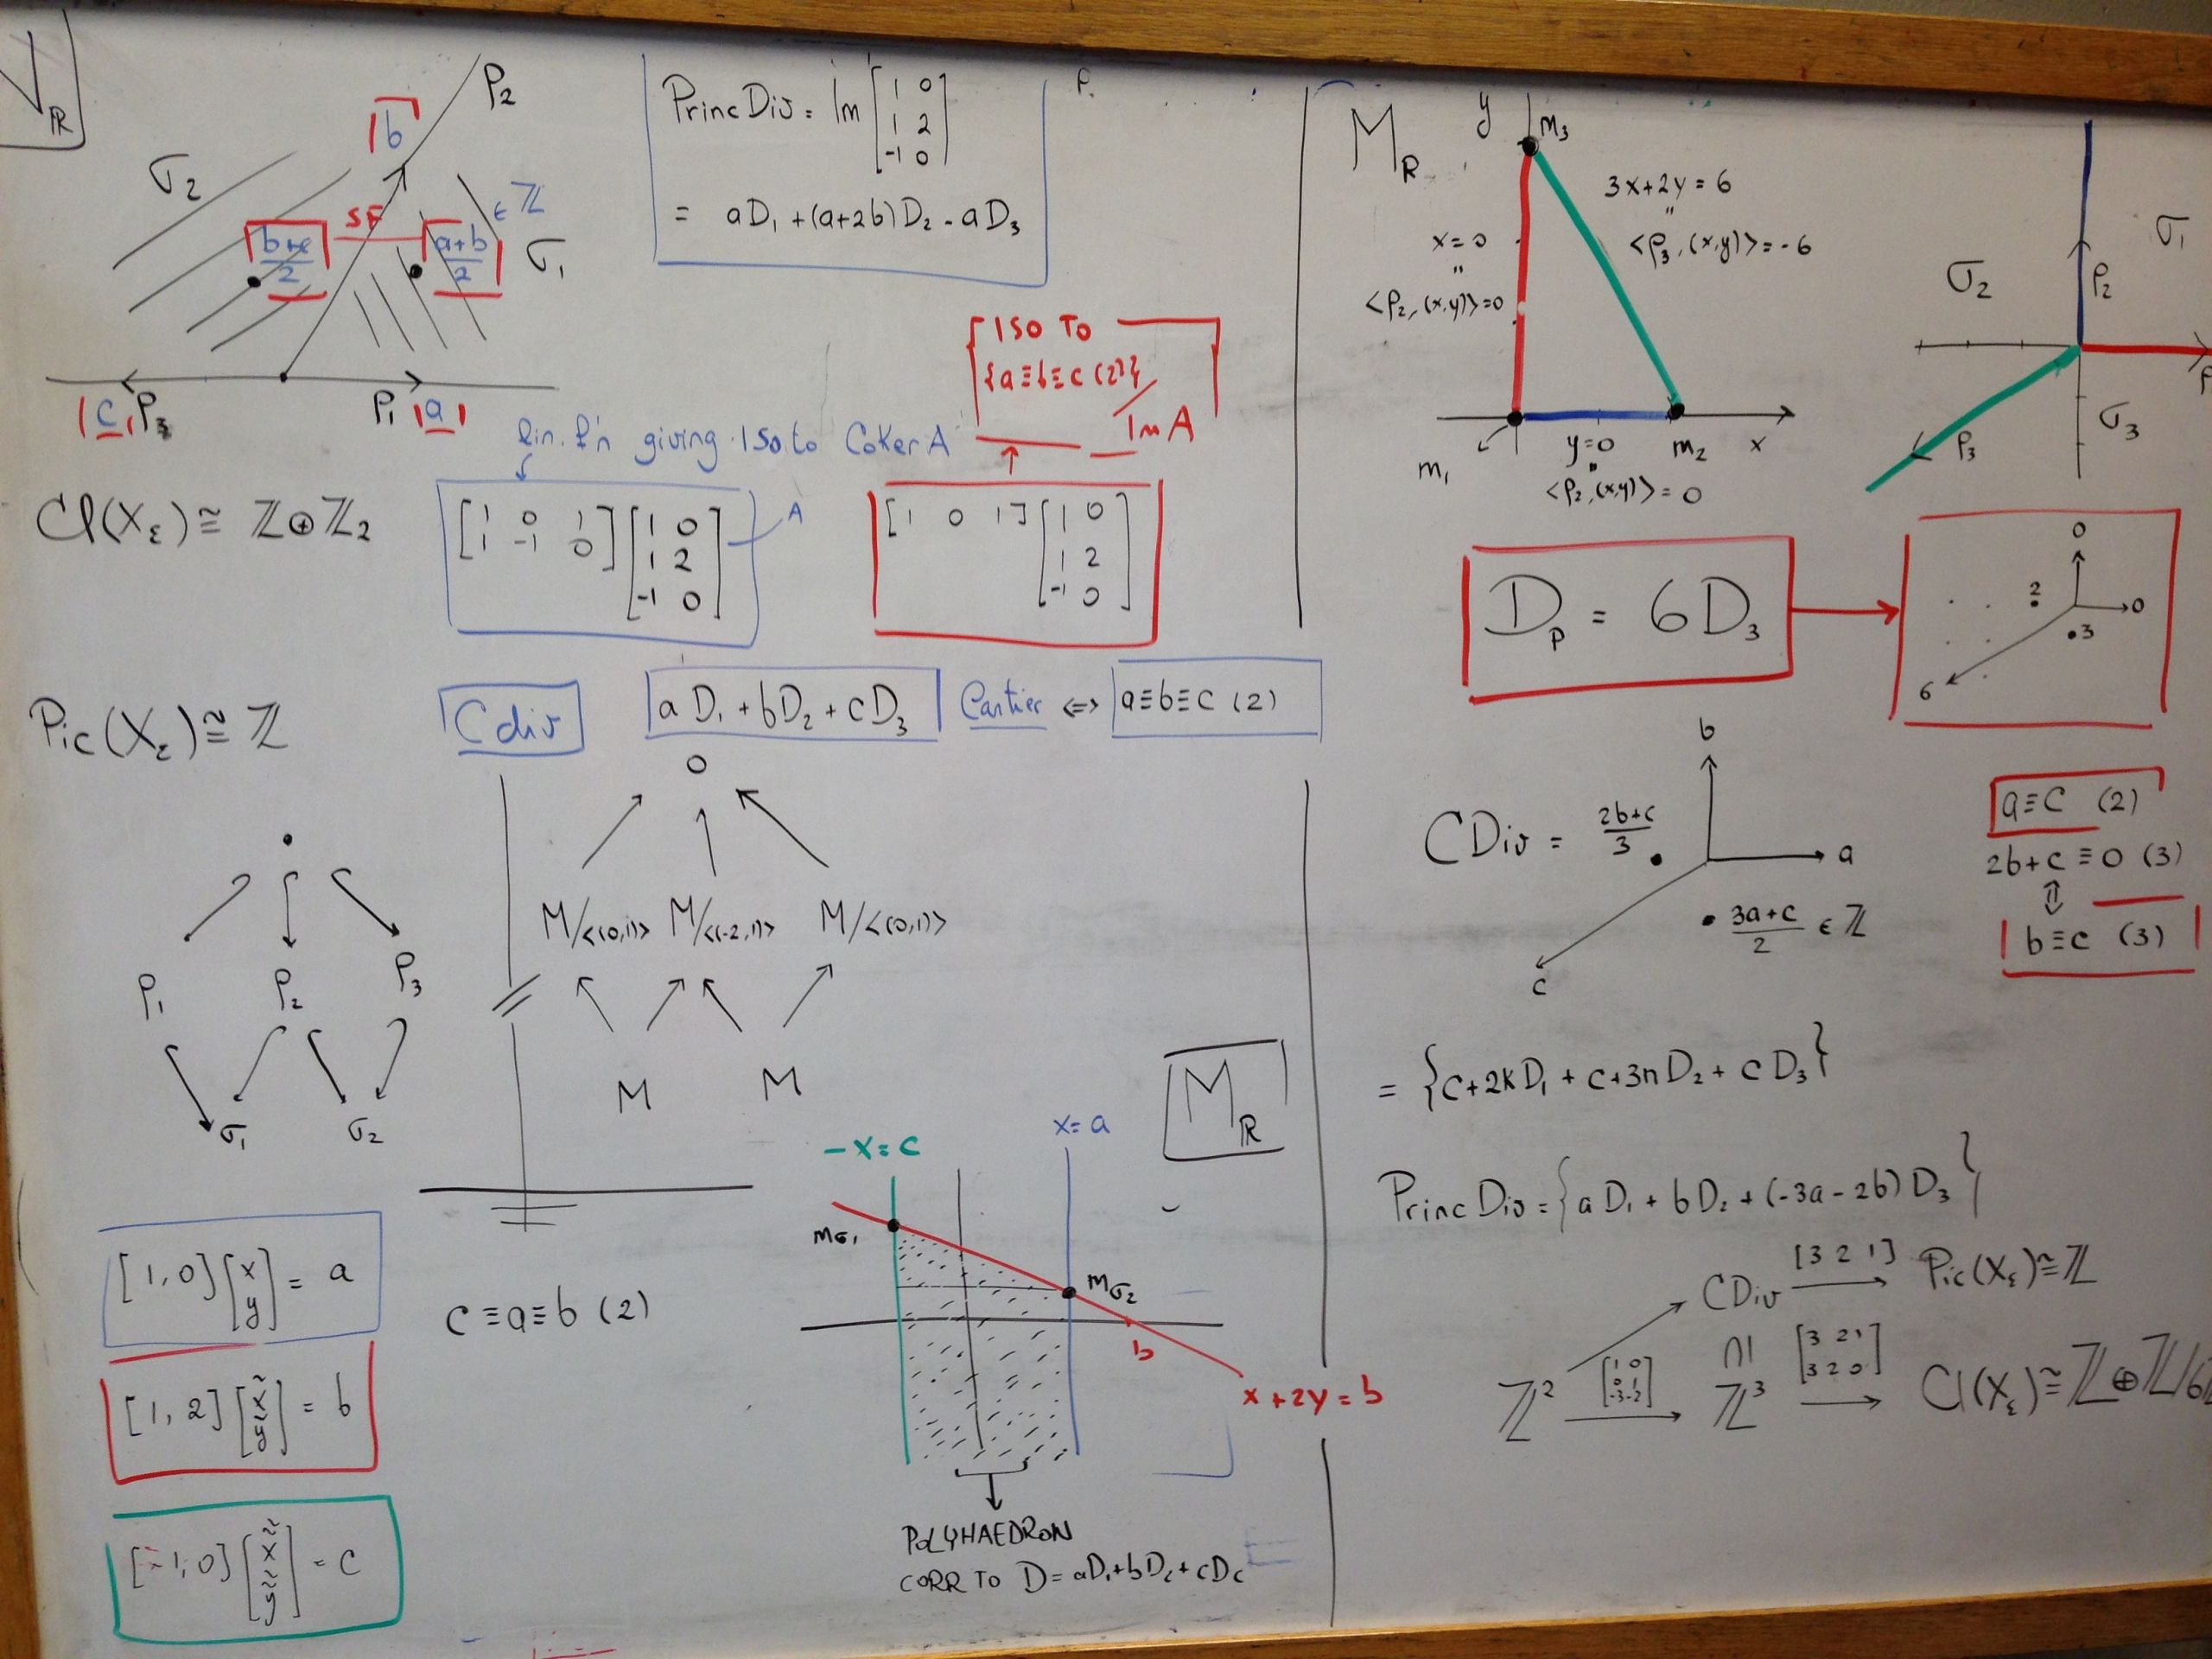 ℝ
σ₂
|b|
ρ₂
SF
b+c/2
a+b/2
∈ ℤ
σ₁
|c| ρ₃
ρ₁ |a|
PrincDiv = Im [1 0; 1 2; -1 0]
= aD₁ + (a+2b)D₂ - aD₃
lin. f'n giving Iso. to Coker A
ISO TO
{a≡b≡c (2)} / Im A
Cl(X_Σ) ≅ ℤ⊕ℤ₂
[1 0 1; 1 -1 0] [1 0; 1 2; -1 0] A
[1 0 1] [1 0; 1 2; -1 0]
Pic(X_Σ) ≅ ℤ
Cdiv
aD₁ + bD₂ + cD₃
Cartier ⟺ a≡b≡c (2)
0
M/<(0,1)> M/<(-2,1)> M/<(0,1)>
M M
ρ₁ ρ₂ ρ₃
σ₁ σ₂
[1,0] [x; y] = a
[1,2] [x̃; ỹ] = b
[-1,0] [x̃̃; ỹ̃] = c
c≡a≡b (2)
M_ℝ
-x=c
x=a
m_σ₁
m_σ₂
b
x+2y=b
POLYHAEDRON
CORR TO D=aD₁+bD₂+cD_c
M_R
y
m₃
3x+2y=6
"
<ρ₃,(x,y)>=-6
x=0
"
<ρ₂,(x,y)>=0
m₁
y=0
"
<ρ₂,(x,y)>=0
m₂
x
σ₂
ρ₂
σ₁
ρ₃
σ₃
D_P = 6D₃
0
2
0
3
6
CDiv =
2b+c/3
b
a
c
3a+c/2 ∈ ℤ
a≡c (2)
2b+c≡0 (3)
⇕
b≡c (3)
= {c+2kD₁ + c+3nD₂ + cD₃}
PrincDiv = {aD₁ + bD₂ + (-3a-2b)D₃}
CDiv [3 2 1] → Pic(X_Σ)≅ℤ
∩|
ℤ² [1 0; 0 1; -3 -2] → ℤ³ [3 2 1; 3 2 0] → Cl(X_Σ)≅ℤ⊕ℤ/6